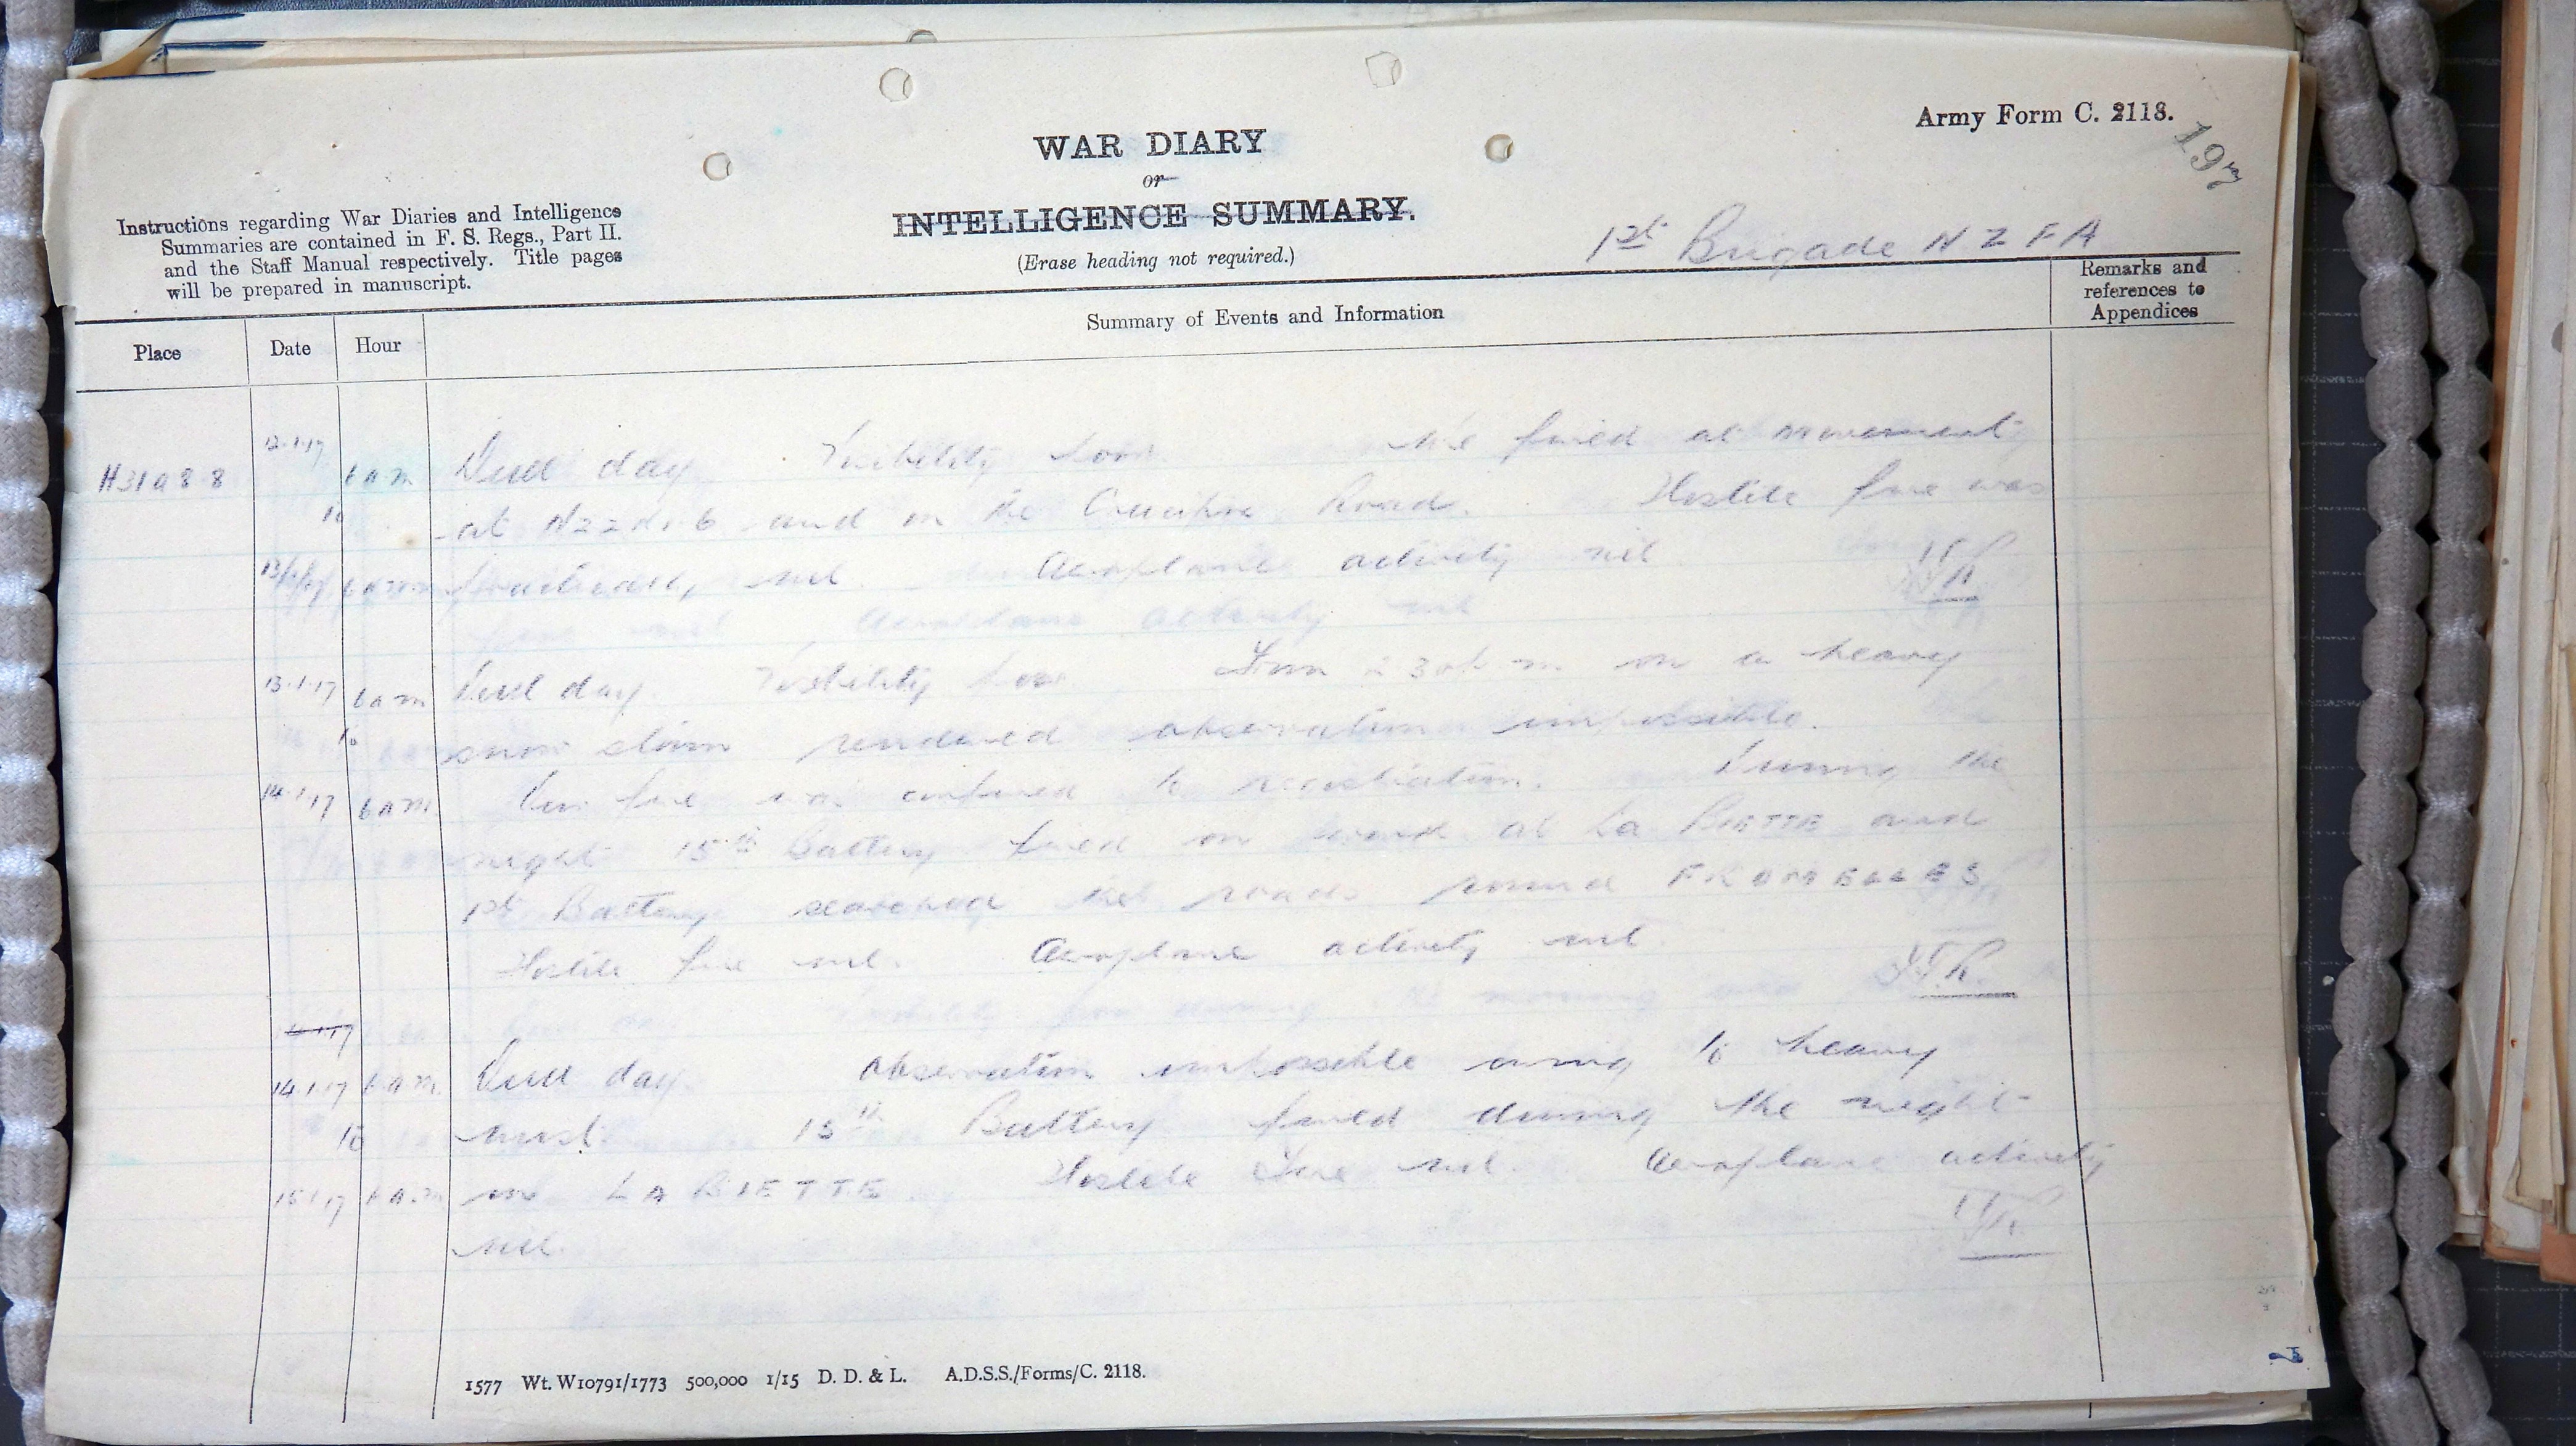 Army Form C. 2118.
197
WAR DIARY
or
INTELLIGENCE SUMMARY.
(Erase heading not required.)
Instructions regarding War Diaries and Intelligence
Summaries are contained in F. S. Regs., Part II.
and the Staff Manual respectively. Title pages
will be prepared in manuscript.
1st Brigade NZFA
Place
Date
Hour
Summary of Events and Information
Remarks and
references to
Appendices
H31a88 12.1.17 6am Dull day Visibility poor We fired at movement
to at and on the Road. Hostile fire was
13/1/17 6am practically nil. Aeroplane activity nil
13.1.17 6am Dull day. Visibility poor From 2 30 p m on a heavy
to snow storm rendered observation impossible.
14.1.17 6am Our fire was confined to registration. During the
night 15th Battery fired on work at La BIETTE and
1st Battery searched the roads round FROMELLES
Hostile fire nil. Aeroplane activity nil
14.1.17 6am Dull day. Observation impossible owing to heavy
to mist. 15th Battery fired during the night
15.1.17 6am on LA BIETTE Hostile Fire nil. Aeroplane activity
nil.
1577 Wt. W10791/1773 500,000 1/15 D. D. & L. A.D.S.S./Forms/C. 2118.